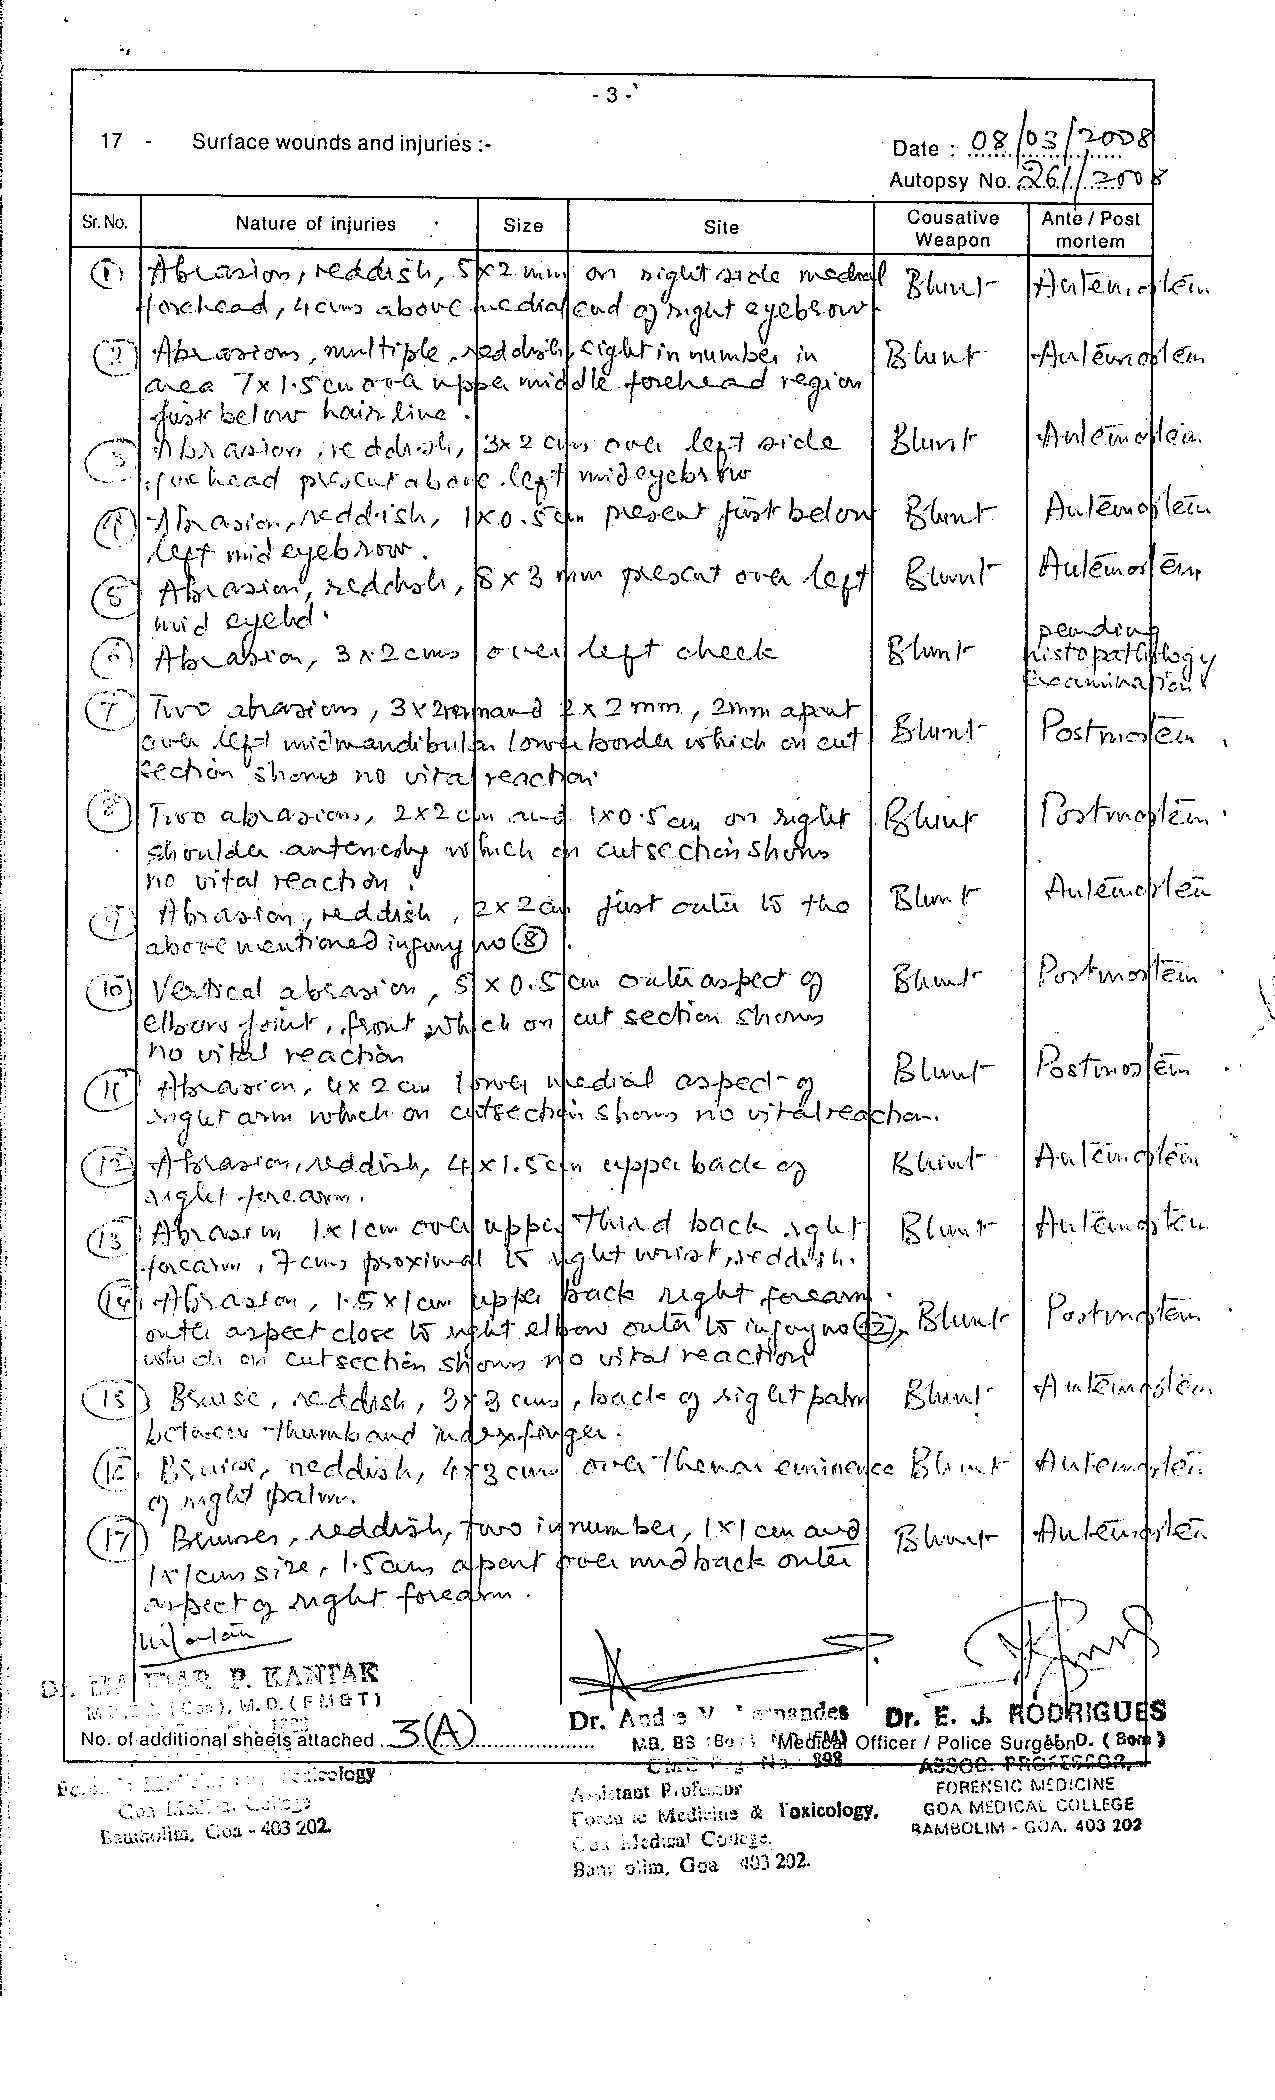 - 3 -
17 - Surface wounds and injuries :-
Date : 08/03/2008
Autopsy No. 261/2008
Sr. No. Nature of injuries Size Site Cousative Weapon Ante / Post mortem
1 Abrasion, reddish, 5x2 mm on right side medial Blunt Antemortem
forehead, 4cms above medial end of right eyebrow
2 Abrasions, multiple, reddish, eight in number in Blunt Antemortem
area 7x1.5cm over upper middle forehead region
just below hair line.
3 Abrasion, reddish, 3x2 cms over left side Blunt Antemortem
forehead present above left mid eyebrow
4 Abrasion, reddish, 1x0.5cm present just below Blunt Antemortem
left mid eyebrow.
5 Abrasion, reddish, 8x3 mm present over left Blunt Antemortem
mid eyelid.
6 Abrasion, 3x2cms over left cheek Blunt pending histopathology examination
7 Two abrasions, 3x2mm and 2x2mm, 2mm apart Blunt Postmortem
over left midmandibular lower border which on cut
section shows no vital reaction
8 Two abrasions, 2x2 cm and 1x0.5cm on right Blunt Postmortem
shoulder anteriorly which on cut section shows
no vital reaction.
9 Abrasion, reddish, 2x2cm just outer to the Blunt Antemortem
above mentioned injury no 8.
10 Vertical abrasion, 5x0.5cm outer aspect of Blunt Postmortem
elbow joint, front which on cut section shows
no vital reaction
11 Abrasion, 4x2 cm lower medial aspect of Blunt Postmortem
right arm which on cutsection shows no vital reaction.
12 Abrasion, reddish, 4x1.5cm upper back of Blunt Antemortem
right forearm.
13 Abrasion 1x1cm over upper third back right Blunt Antemortem
forearm, 7cms proximal to right wrist, reddish.
14 Abrasion, 1.5x1cm upper back right forearm Blunt Postmortem
outer aspect close to right elbow outer to injury no 12,
which on cutsection shows no vital reaction
15 Bruise, reddish, 3x3 cms, back of right palm Blunt Antemortem
between thumb and index finger.
16 Bruise, reddish, 4x3cms over thenar eminence Blunt Antemortem
of right palm.
17 Bruises, reddish, two in number, 1x1cm and Blunt Antemortem
1x1cms size, 1.5cms apart over mid back outer
aspect of right forearm.
P. KANTAK
Dr. E. J. RODRIGUES
No. of additional sheets attached 3(A)
Medical Officer / Police Surgeon
ASSOC. PROFESSOR,
Assistant Professor FORENSIC MEDICINE
Medicine & Toxicology. GOA MEDICAL COLLEGE
Goa - 403 202. BAMBOLIM - GOA. 403 202
Goa Medical College.
Goa 403 202.